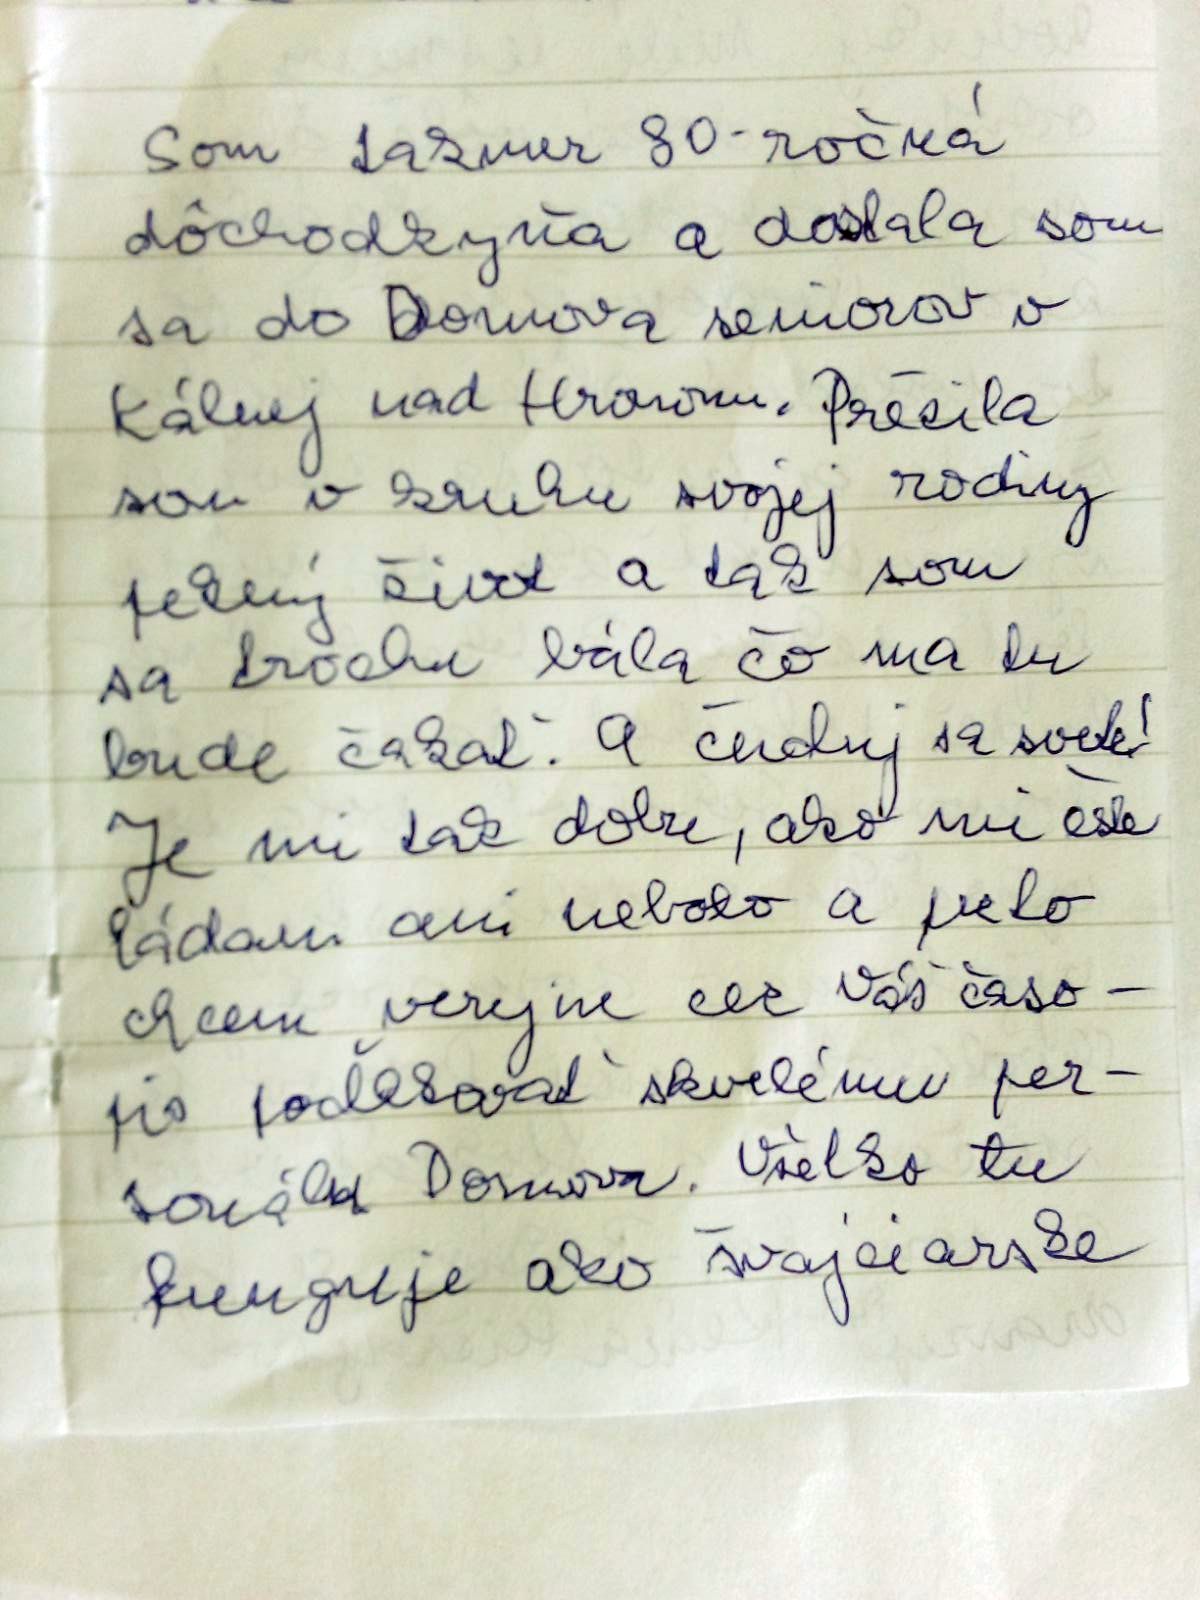 Som takmer 80-ročná
dôchodkyňa a dostala som
sa do Domova seniorov v
Kálnej nad Hronom. Prežila
som v kruhu svojej rodiny
pekný život a tak som
sa trochu bála čo ma tu
bude čakať. A čuduj sa svete!
Je mi tak dobre, ako mi ešte
ádam ani nebolo a preto
chcem verejne cez Váš časo-
pis poďakovať skvelému per-
sonálu Domova. Všetko tu
funguje ako švajčiarske